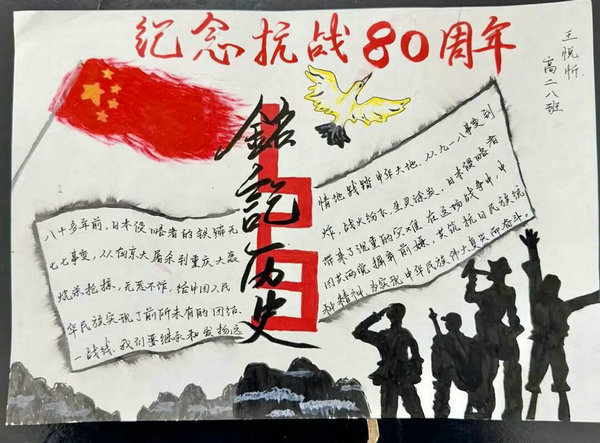 纪念抗战80周年
王悦忻
高二八班
铭记历史
八十多年前,日本侵略者的铁蹄无
七七事变,从南京大屠杀到重庆大轰
烧杀抢掠,无恶不作,给中国人民
华民族实现了前所未有的团结
一战线。我们要继承和发扬这
情地践踏中华大地。从九一八事变到
炸,战火纷飞,生灵涂炭。日本侵略者
带来了沉重的灾难。在这场战争中,中
国共两党摒弃前嫌,共筑抗日民族统
种精神,为实现中华民族伟大复兴而奋斗。